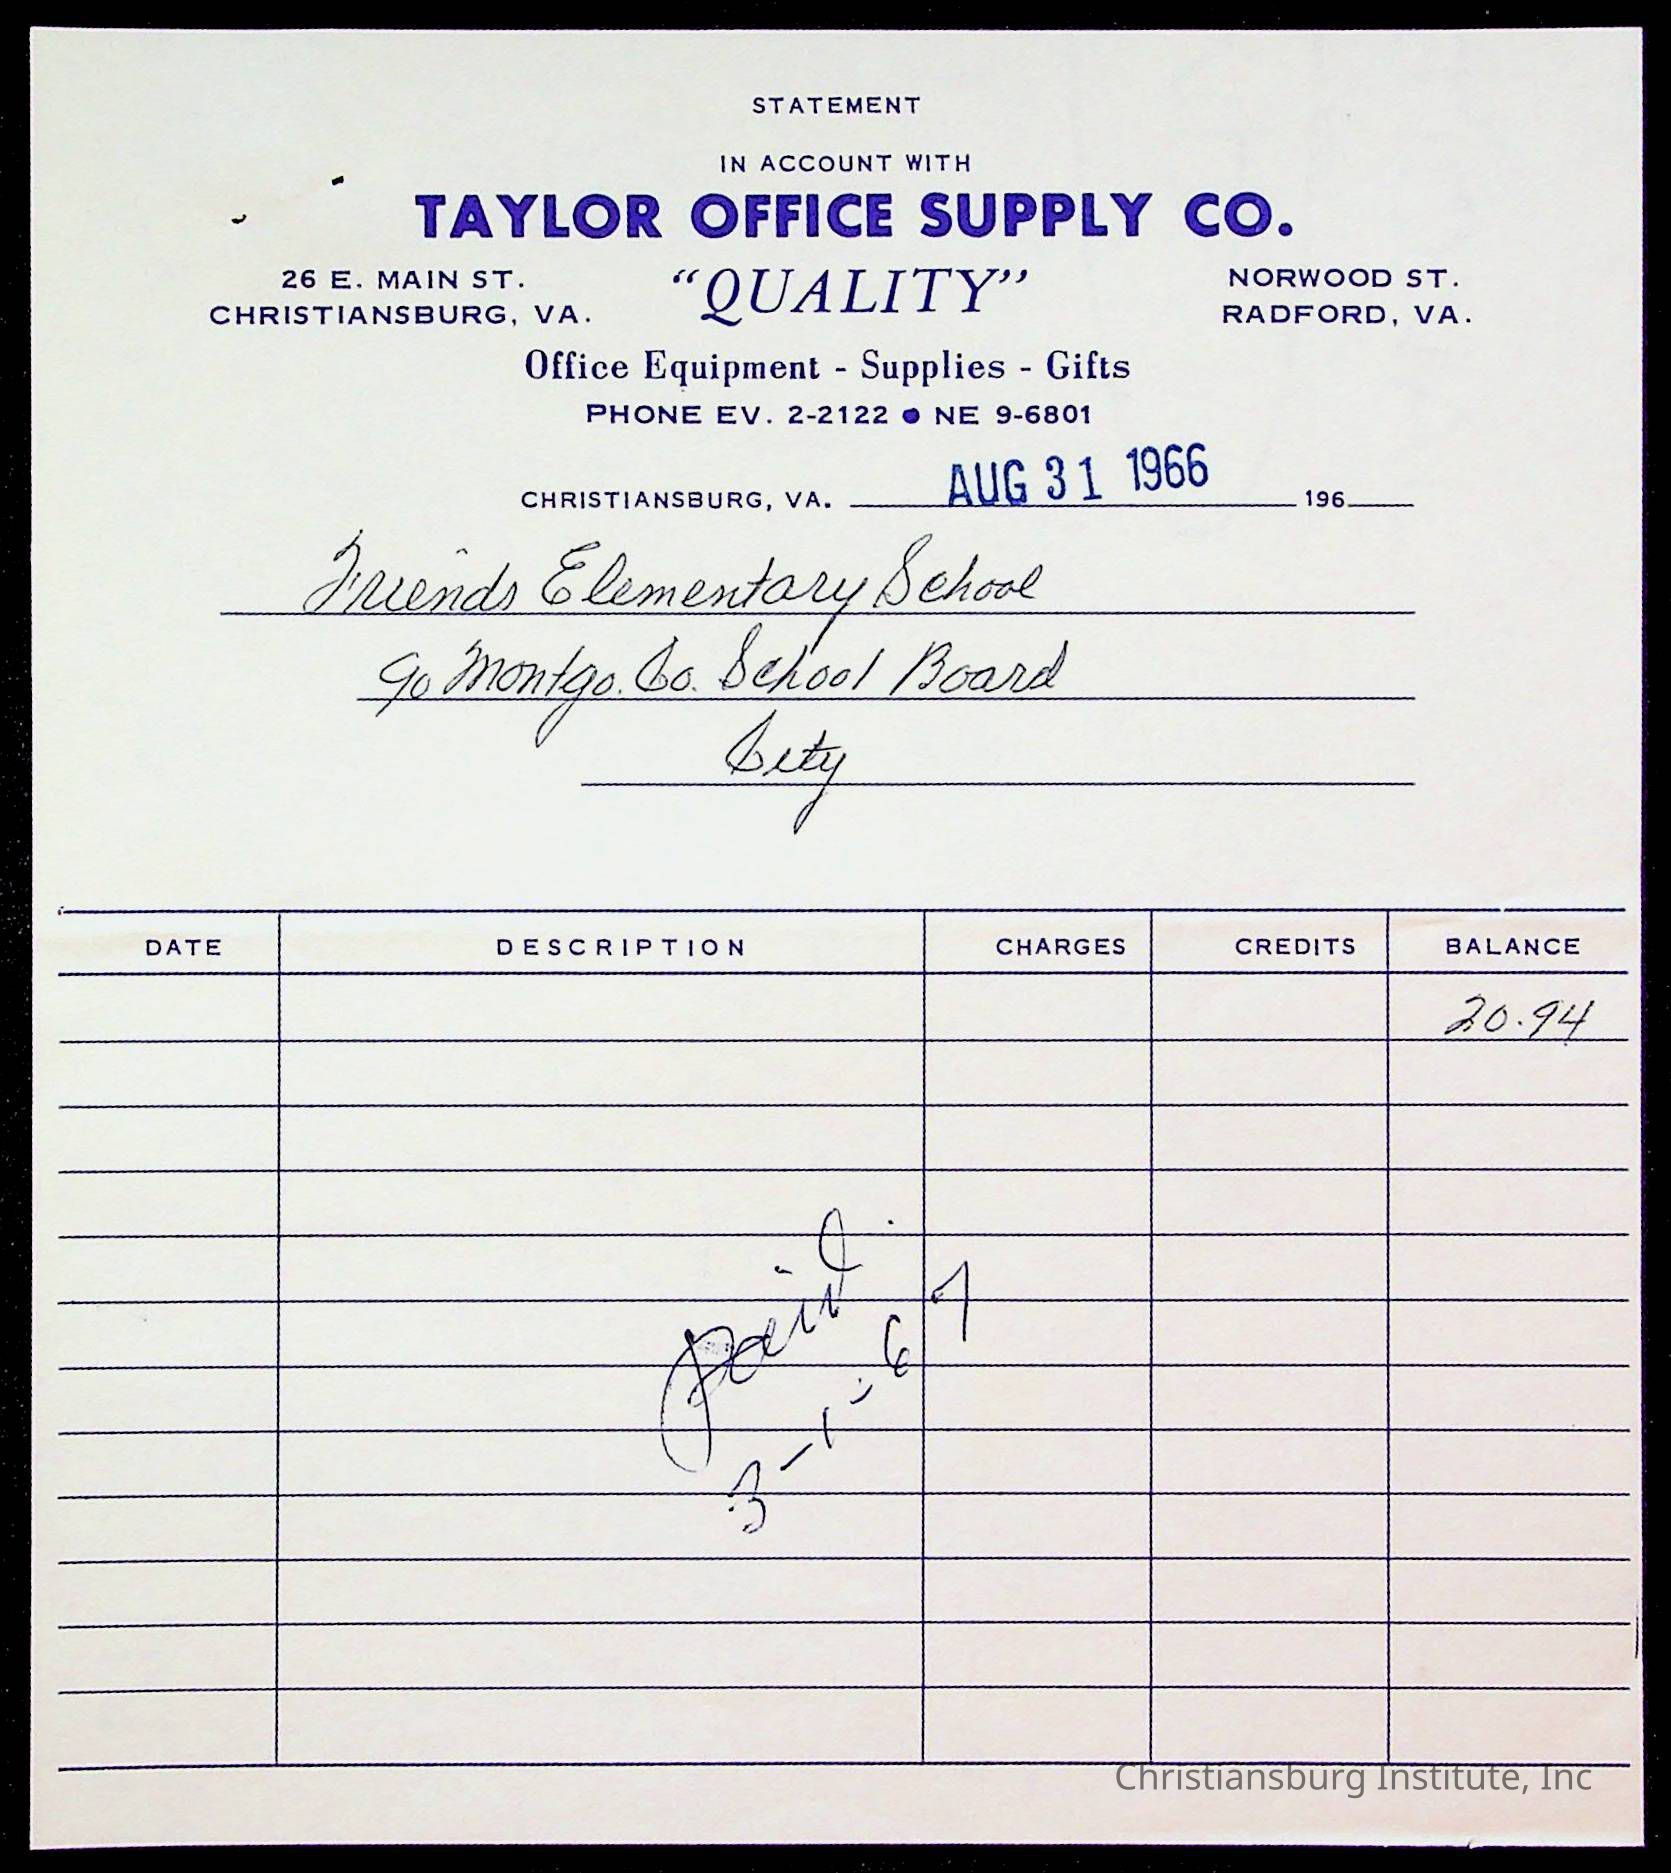 STATEMENT
IN ACCOUNT WITH
TAYLOR OFFICE SUPPLY CO.
26 E. MAIN ST. "QUALITY" NORWOOD ST.
CHRISTIANSBURG, VA. RADFORD, VA.
Office Equipment - Supplies - Gifts
PHONE EV. 2-2122 ● NE 9-6801
CHRISTIANSBURG, VA. AUG 31 1966 196
Friends Elementary School
c/o Montgo. Co. School Board
City
DATE DESCRIPTION CHARGES CREDITS BALANCE
20.94
paid
3-1-67
Christiansburg Institute, Inc